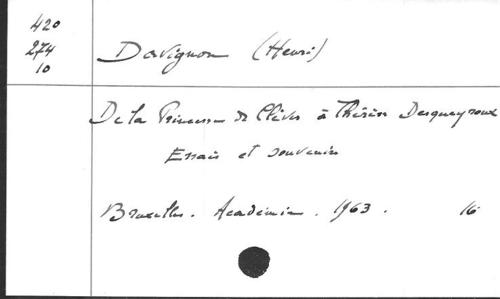 420
274
10
Davignon (Henri)
De la Princesse de Clèves à Thérèse Desqueyroux
Essais et souvenirs
Bruxelles. Académie. 1963. 16